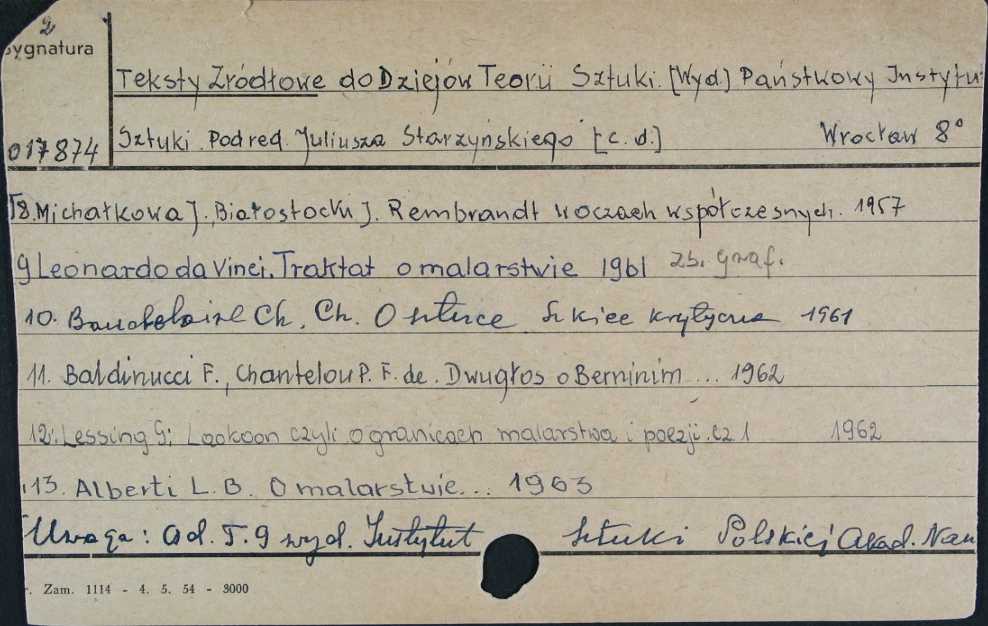 2
Sygnatura
Teksty Źródłowe do Dziejów Teorii Sztuki. [Wyd.] Państwowy Instytu
017874 Sztuki. Pod red. Juliusza Starzyńskiego [c. d.] Wrocław 8°
T8. Michałkowa J., Białostocki J. Rembrandt w oczach współczesnych. 1957
9 Leonardo da Vinci. Traktat o malarstwie 1961 zb. graf.
10. Baudelaire Ch. Ch. O sztuce. Szkice krytyczne 1961
11. Baldinucci F., Chantelou P. F. de. Dwugłos o Berninim ... 1962
12. Lessing G: Laokoon czyli o granicach malarstwa i poezji. cz 1 1962
13. Alberti L. B. O malarstwie... 1963
Uwaga: od. T. 9 wyd. Instytut Sztuki Polskiej Akad. Nau
. Zam. 1114 - 4. 5. 54 - 3000